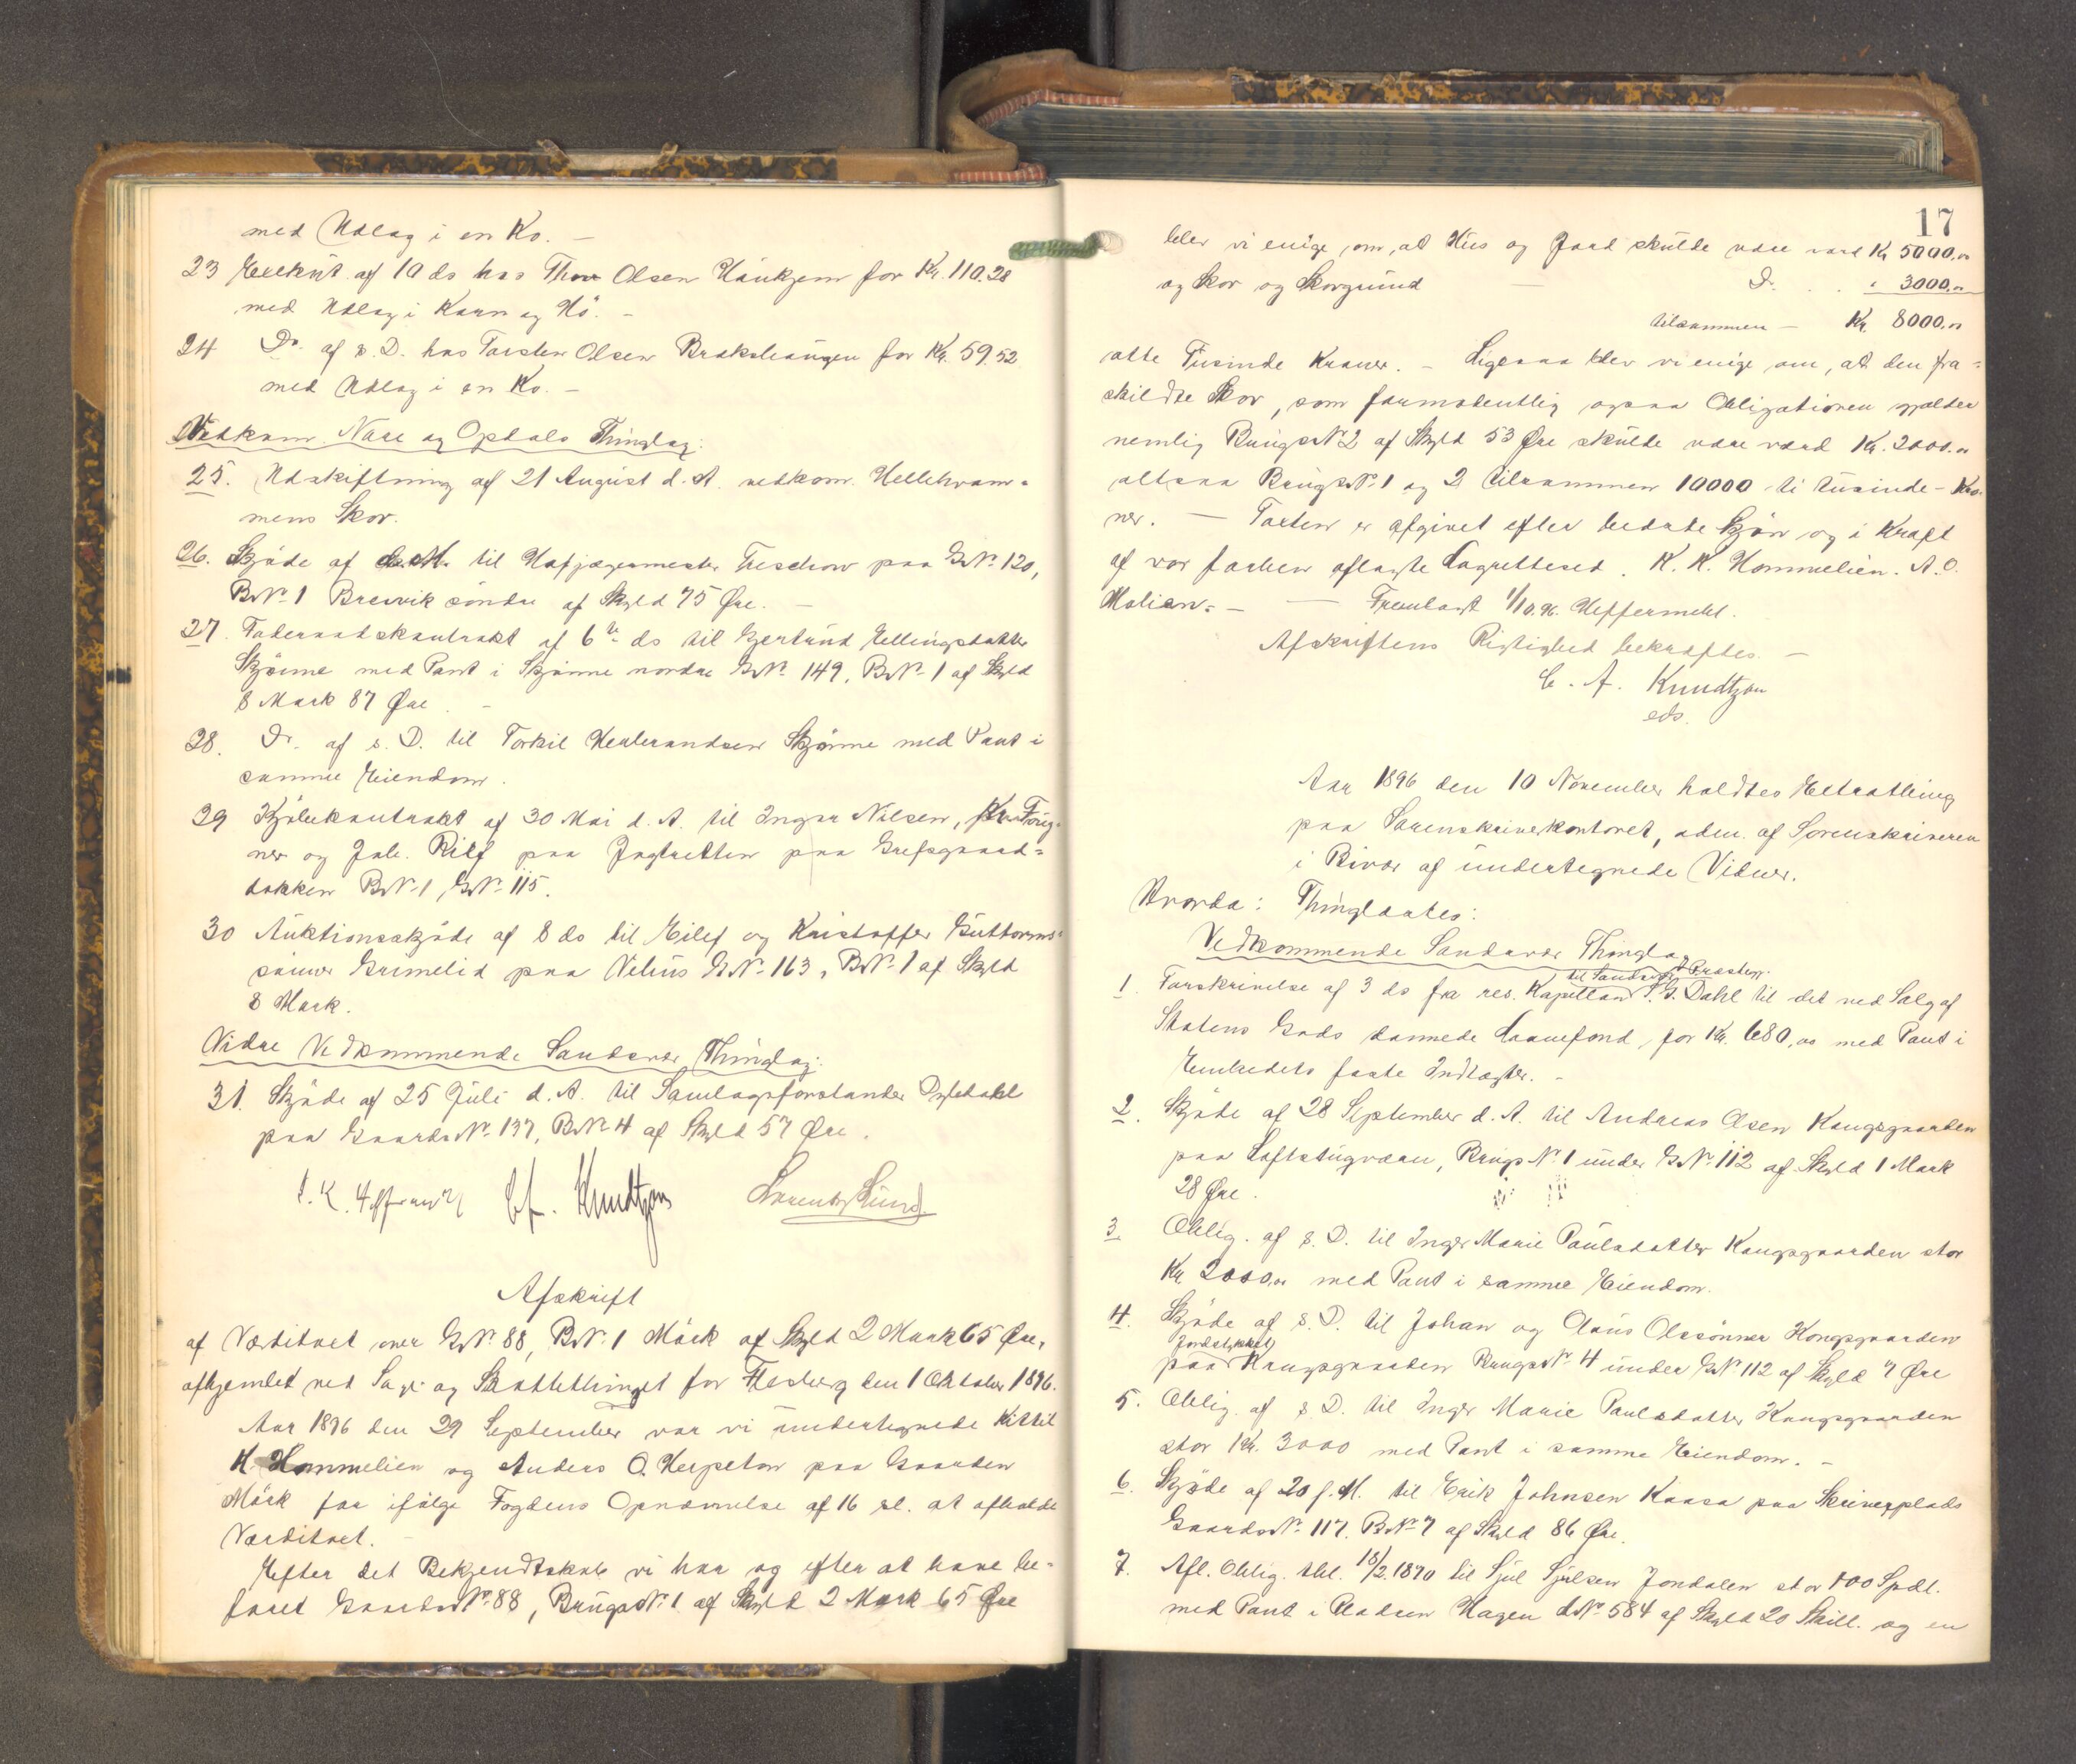 med Udlæg i en Ko. –
23 Exekut. af 10 ds hos Thor Olsen Haukjem for Kr. 110.28
med Udlæg i Korn og Hö. –
24 Do. af s. D. hos Torsten Olsen for Kr. 59.52
med Udlæg i en Ko. –
Vedkom. Nore og Opdals Thinglag:
25. Udskiftning af 21 August d. A. vedkom. Hellehvam=
mens Skov.
26. Skjöde af d. M. til Hofjægermester Treschow paa G.N. 120,
B.N. 1 Brevik söndre af Skyld 75 Øre. –
27. Föderaadskontrakt af 6te ds til Gjertrud Hellingsdatter
Skjönne med Pant i Skjönne nordre G.N. 149, B.N. 1 af Skyld
8 Mark 87 Øre. –
28. Do. af s. D. til Torkil Herbrandsen Skjönne med Pant i
samme Eiendom.
29 Kjöbekontrakt af 30 Mai d. A. til Ingvar Nilsen, Kr. Foug=
ner og Joh. Rilf paa Jagtretten paa Grefsgaard=
dokken B.N. 1, G.N. 115.
30 Auktionsskjöde af 8 ds til Eilef og Kristoffer Guttorms=
sönner Grimelid paa Velius G.N. 163, B.N. 1 af Skyld
8 Mark.
Vidre Vedkommende Sandsvær Thinglag:
31. Skjöde af 25 Juli d. A. til Samlagsforstander
paa Gaards N. 137, B.N. 4 af Skyld 57 Øre.
C. A. Knudtzon Laurentz Lund
Afskrift
af Værditaxt over G.N. 88, B.N. 1 Mörk af Skyld 2 Mark 65 Øre,
afhjemlet ved Sage- og Skattethinget for Flesberg den 1 Oktober 1896.
Aar 1896 den 29 September var vi undertegnede Kittil
K. Hommelien og Anders O. paa Gaarden
Mörk for ifölge Fogdens Opnævnelse af 16 sl. at afholde
Værditaxt. –
Efter det Bekjendtskab vi har og efter at have be=
faret Gaards N. 88, Brugs N. 1 af Skyld 2 Mark 65 Øre
17
blev vi enige om, at Hus og Jord skulde være værd Kr. 5000.00
og Skov og Skovgrund – Do. . . " 3000.00
tilsammen – Kr. 8000.00
otte Tusinde Kroner. – Ligesaa blev vi enige om, at den fra=
skildte Skov, som formodentlig ogsaa Obligationen gjælder
nemlig Brugs N. 2 af Skyld 53 Øre skulde være værd Kr. 2000.00
altsaa Brugs N. 1 og 2 tilsammen 10000 ti tusinde – Kro=
ner. – Taxten er afgivet efter bedste Skjön og i Kraft
af vor forhen aflagte Lagretteseed. K. K. Hommelien. A. O.
– – Fremlagt 1/10.96. Heffermehl.
Afskriftens Rigtighed bekræftes. –
C. A. Knudtzon
eds.
Aar 1896 den 10 November holdtes Extrathing
paa Sorenskriverkontoret, adm. af Sorenskriveren
i Bivær af undertegnede Vidner.
Hvorda: Thinglæstes:
Vedkommende Sandsvær Thinglag
1. Forskrivelse af 3 ds fra res. Kapellan til Sandsvær Præstegj. S. G. Dahl til det ved Salg af
Statens Gods dannede Laanefond, for Kr. 680,00 med Pant i
Embedets faste Indtægter. –
2. Skjöde af 28 September d. A. til Andreas Olsen Kongsgaarden
paa Loftstugværn, Brugs N. 1 under G.N. 112 af Skyld 1 Mark
28 Øre.
3. Oblig. af s. D. til Inger Marie Paulsdatter Kongsgaarden stor
Kr. 2000.00 med Pant i samme Eiendom.
4. Skjöde af s. D. til Johan og Claus Olssönner Kongsgaarden
paa Jordstykket Kongsgaarden Brugs N. 4 under G.N. 112 af Skyld 7 Øre
5. Oblig. af s. D. til Inger Marie Paulsdatter Kongsgaarden
stor Kr. 3000 med Pant i samme Eiendom. –
6. Skjöde af 20 f. M. til Erik Johnsen Kaasa paa Skriverplads
Gaards N. 117, B.N. 7 af Skyld 86 Øre.
7. Afl. Oblig. thl. 18/2.1870 til Sjul Sjulsen Jondalen stor 100 Spdl.
med Pant i Pladsen Hagen L.N. 584 af Skyld 20 Skill. og en